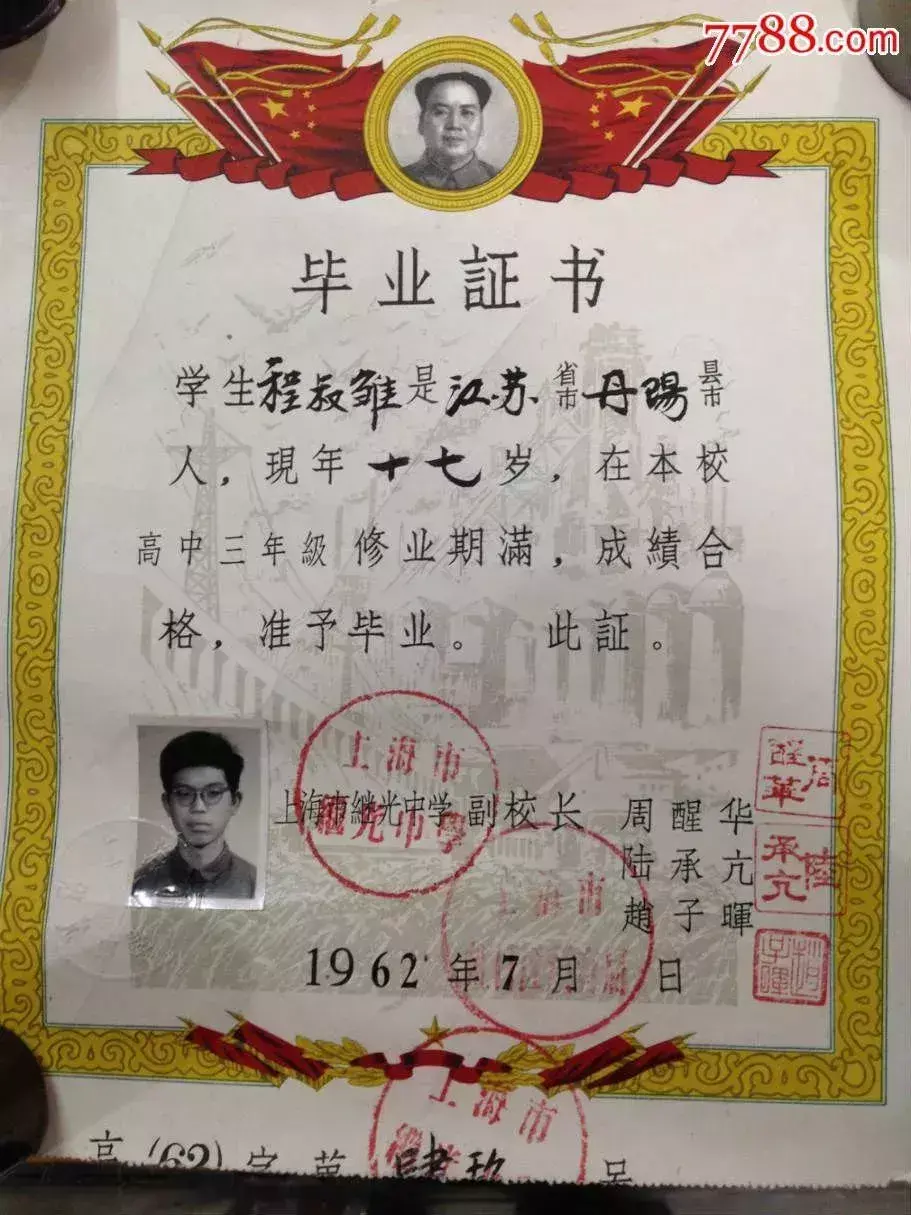 7788.com
毕业証书
学生程叔雏是江苏省市丹陽县市
人，現年十七岁，在本校
高中三年級修业期滿，成績合
格，准予毕业。 此証。
上海市
繼光中學
上海市継光中学副校长 周醒华
陆承亢
趙子暉
周醒華
陸承亢
趙子暉
上海市
1962年7月 日
上海市
高(62)字第肆玖号